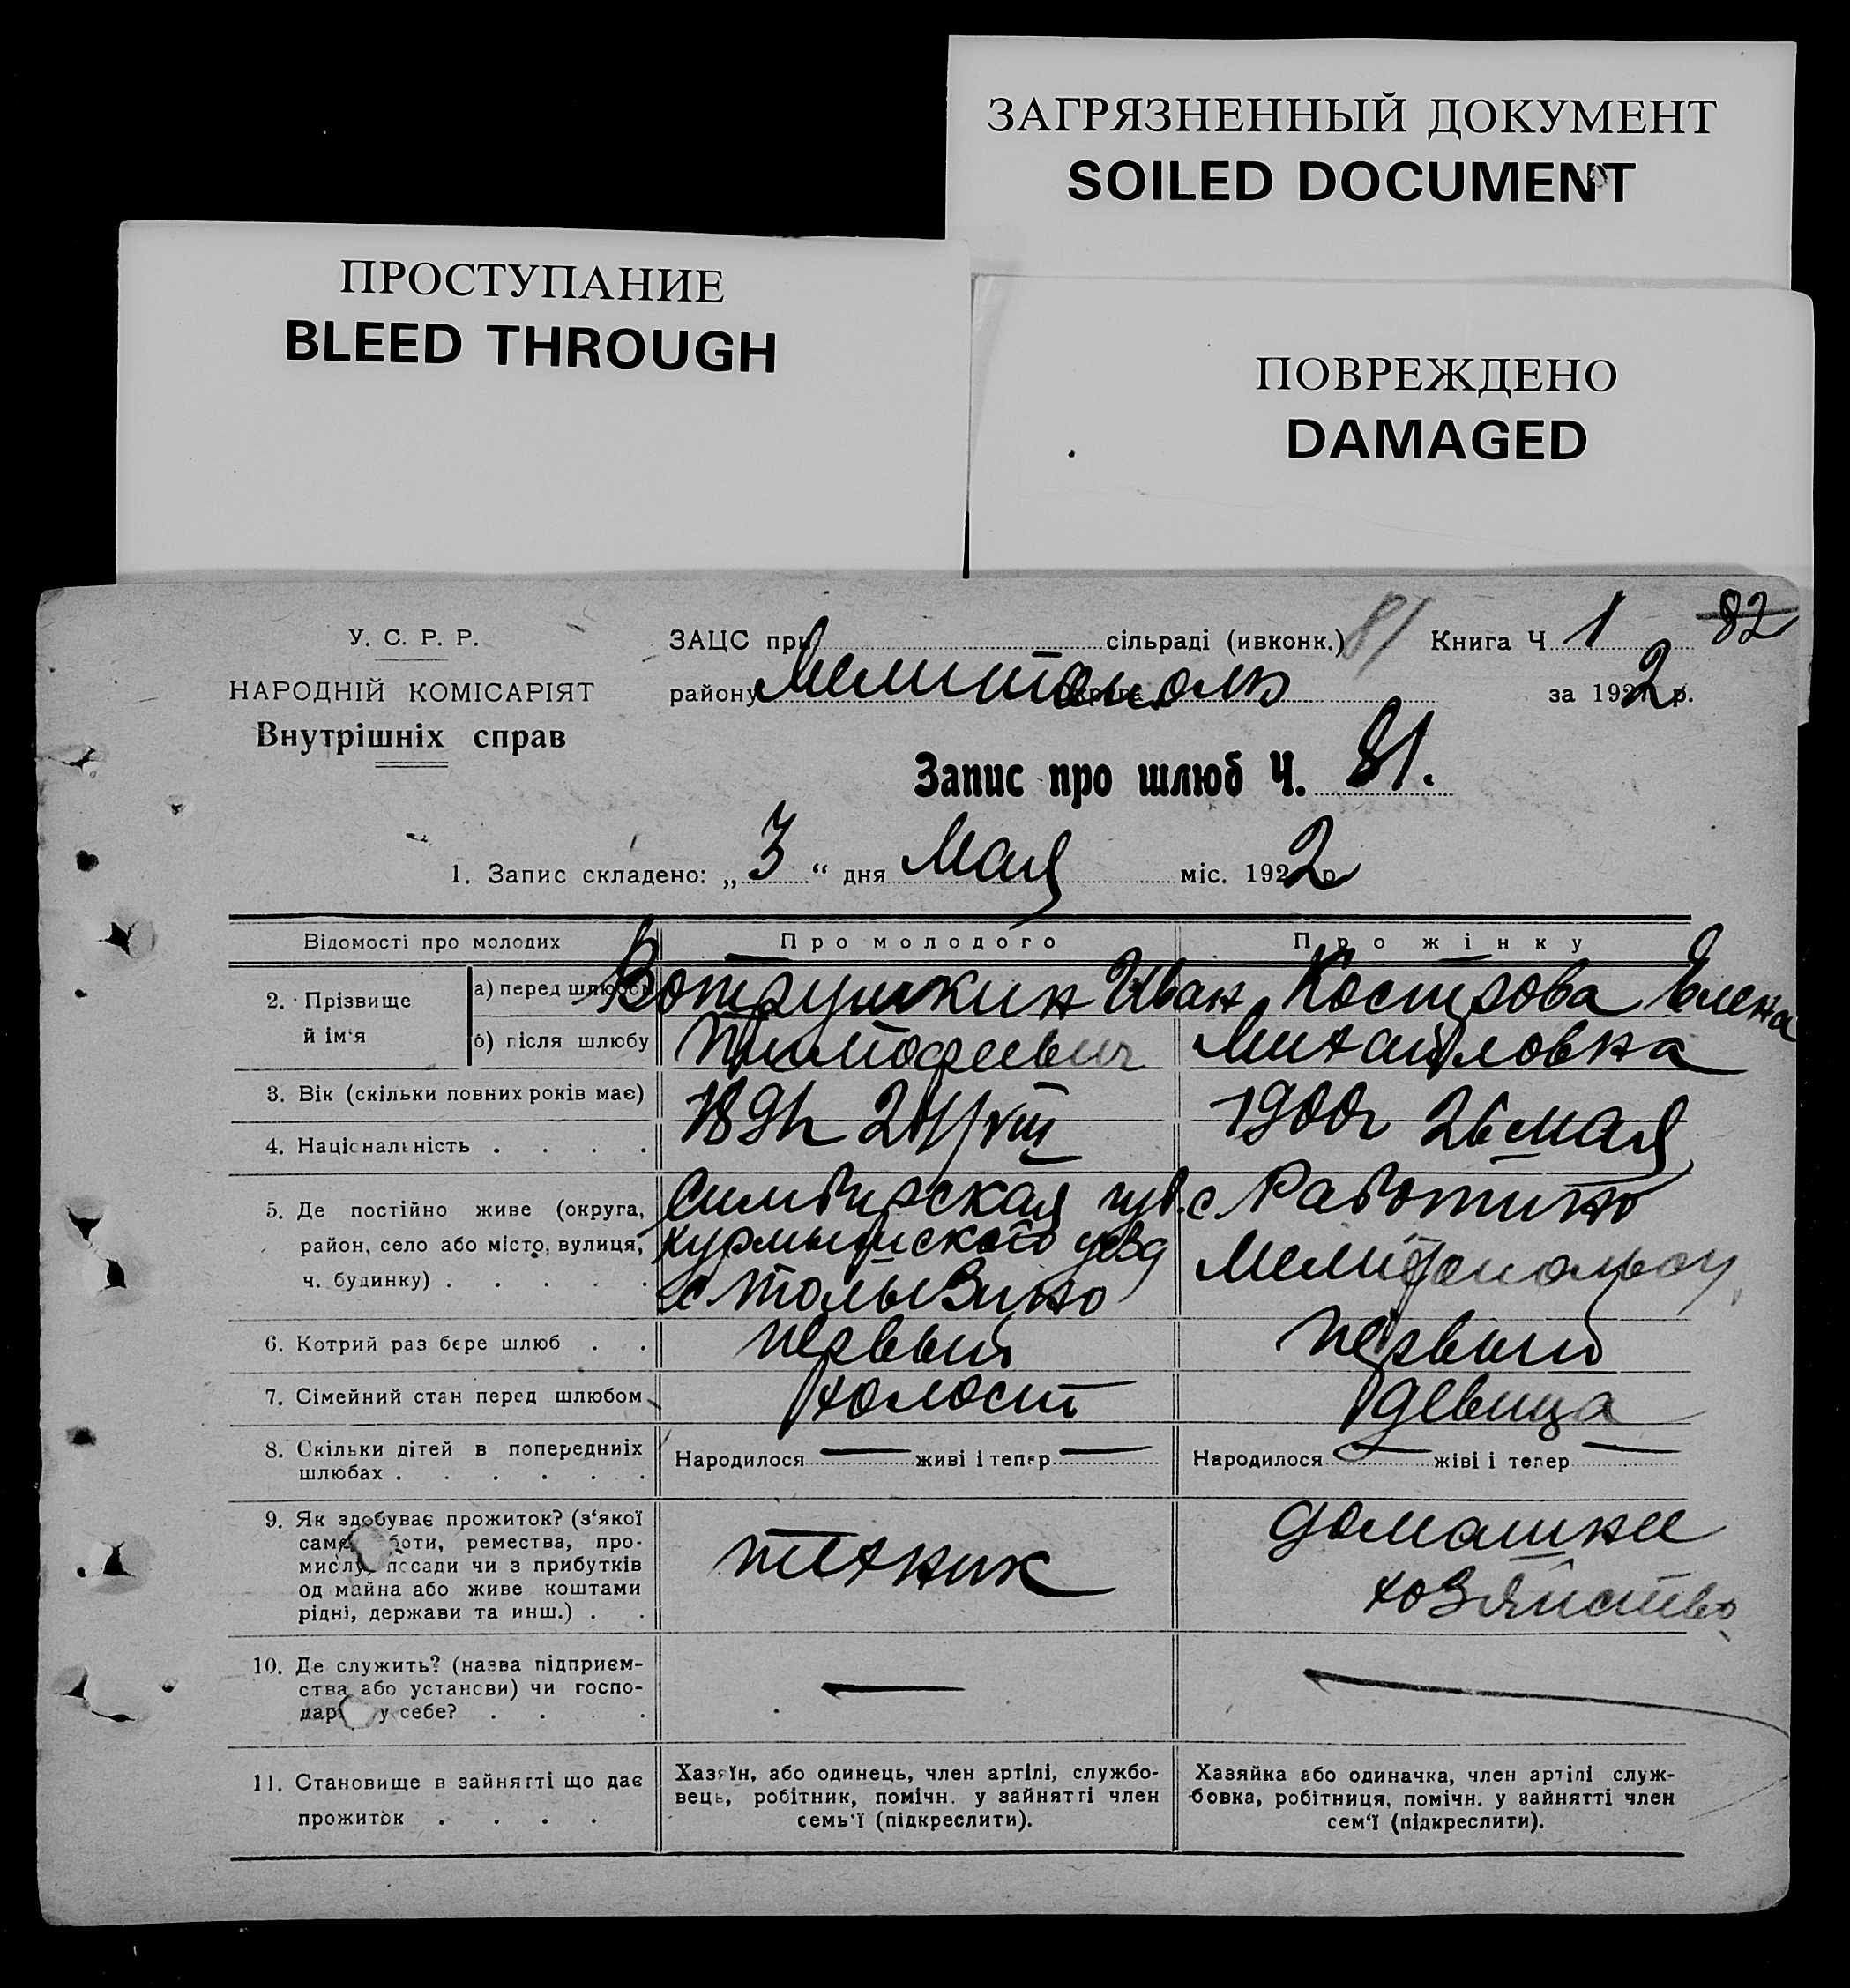 ЗАГРЯЗНЕННЫЙ ДОКУМЕНТ
SOILED DOCUMENT
ПРОСТУПАНИЕ
BLEED THROUGH
ПОВРЕЖДЕНО
DAMAGED
У. С. Р. Р.
НАРОДНІЙ КОМІСАРІЯТ
Внутрішніх справ
ЗАЦС при сільраді (ивконк.) 81 Книга Ч. 1 82
району Мелитополь за 1922 р.
Запис про шлюб Ч. 81.
1. Запис складено: „3“ дня Мая міс. 1922 р
Відомості про молодих Про молодого Про жінку
2. Прізвище й ім‘я
а) перед шлюбом Вотрушкин Иван Кострова Елена
б) після шлюбу Тимофеевич Михайловна
3. Вік (скільки повних років має)
4. Національність . . . .
1900г 26 мая
5. Де постійно живе (округа, Симбирская губ. с Работино
район, село або місто, вулиця, Курмышского уезд
ч. будинку) . . . . .
6. Котрий раз бере шлюб . . первый первый
7. Сімейний стан перед шлюбом холост девица
8. Скільки дітей в попередниіх Народилося живі і тепер Народилося жіві і тепер
шлюбах . . . . . .
9. Як здобуває прожиток? (з‘якої домашнее
саме боти, ремества, про-
мислу, посади чи з прибутків техник
од майна або живе коштами хозяйство
рідні, держави та инш.) . .
10. Де служить? (назва підприєм-
ства або установи) чи госпо-
дар у себе? . . . .
11. Становище в зайнятті що дає
прожиток . . . .
Хазяїн, або одинець, член артілі, службо-
вець, робітник, помічн. у зайнятті член
семь‘ї (підкреслити).
Хазяйка або одиначка, член артілі служ-
бовка, робітниця, помічн. у зайнятті член
сем‘ї (підкреслити).